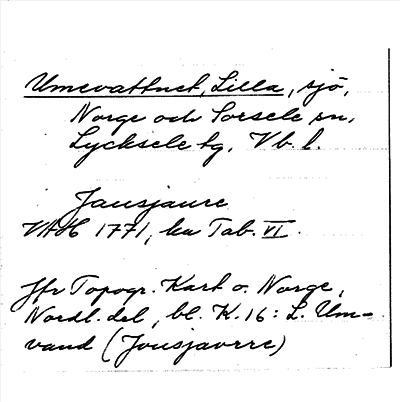 Umevattnet, Lilla, sjö,
Norge och Sorsele sn,
Lycksele tg, Vb. l.
Jausjaure
VAH 1771, Tab. VI.
Jfr Topogr. Kart o. Norge,
Nordl. del, bl. K. 16: L. Um-
vand (Jousjavrre)